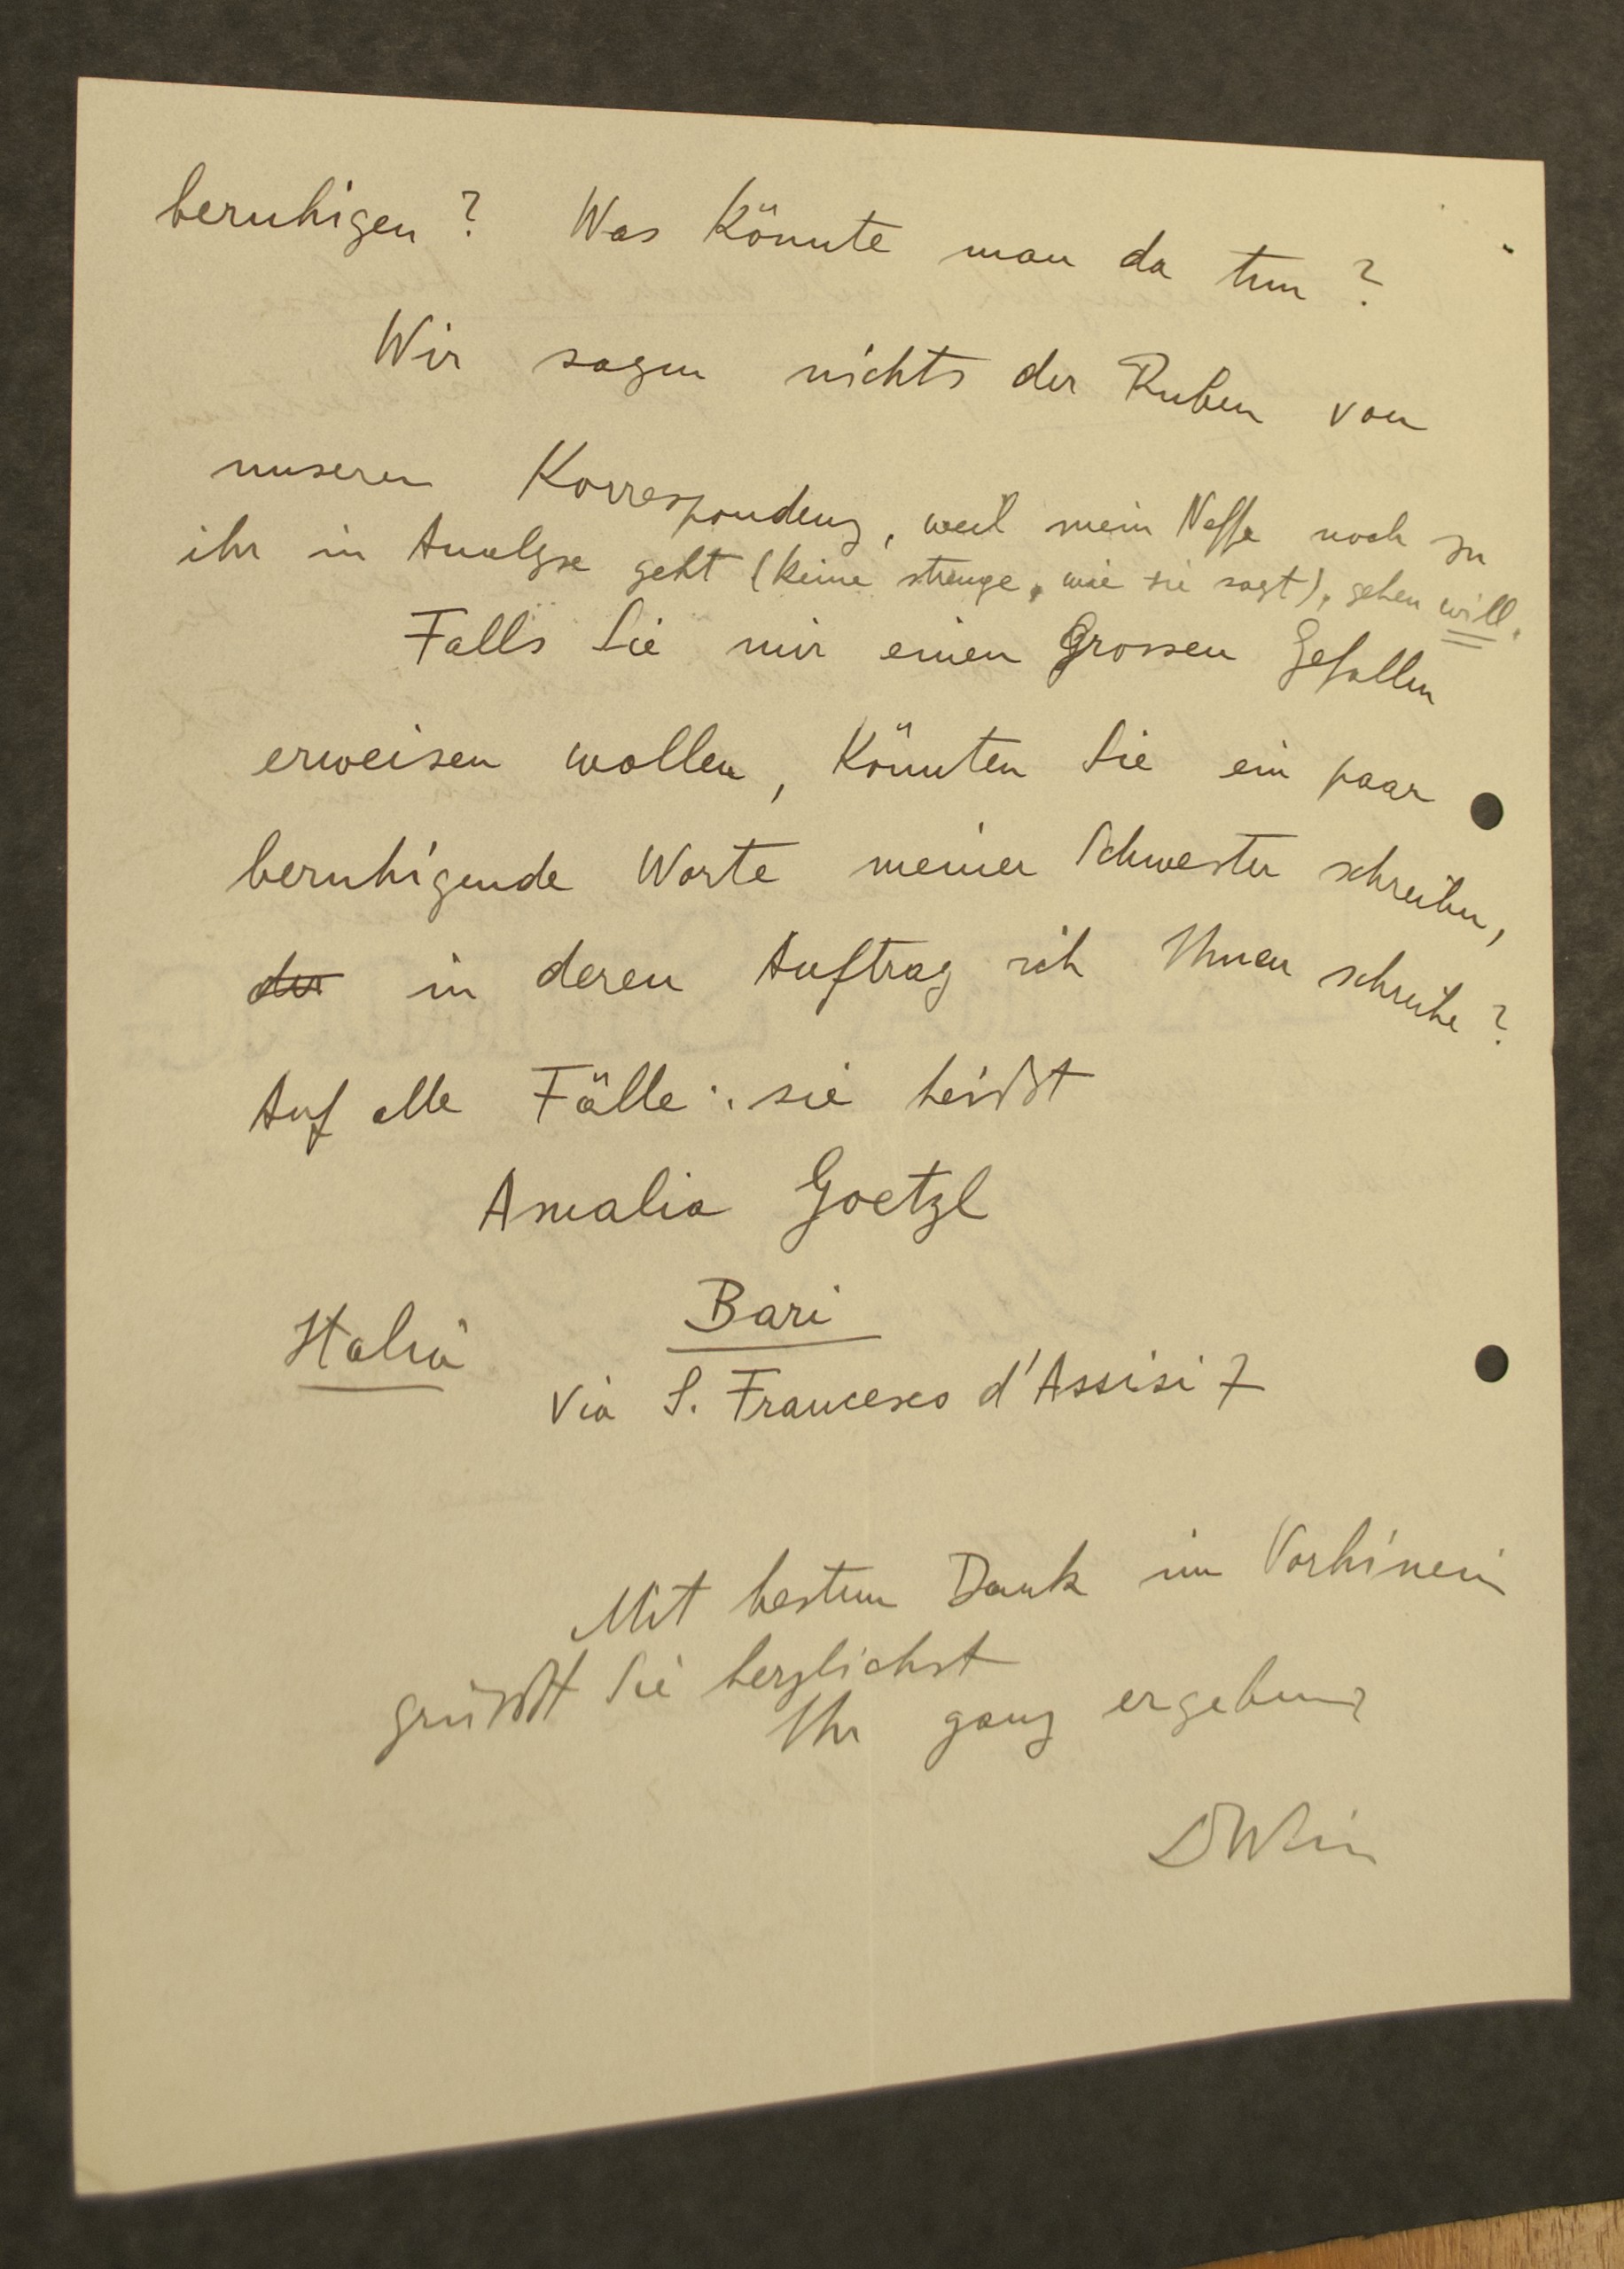 beruhigen? Was könnte man da tun?
Wir sagen nichts der Ruben von
unserer Korrespondenz, weil mein Neffe noch zu
ihr in Analyse geht (keine strenge, wie sie sagt), gehen will.
Falls Sie mir einen Grossen Gefallen
erweisen wollen, könnten Sie ein paar
beruhigende Worte meiner Schwester schreiben,
der in deren Auftrag ich Ihnen schreibe?
Auf alle Fälle: sie heißt
Amalia Goetzl
Bari
Italia
Via S. Francesco d'Assisi 7
Mit bestem Dank im Vorhinein
grüßt Sie herzlichst
Ihr ganz ergebener